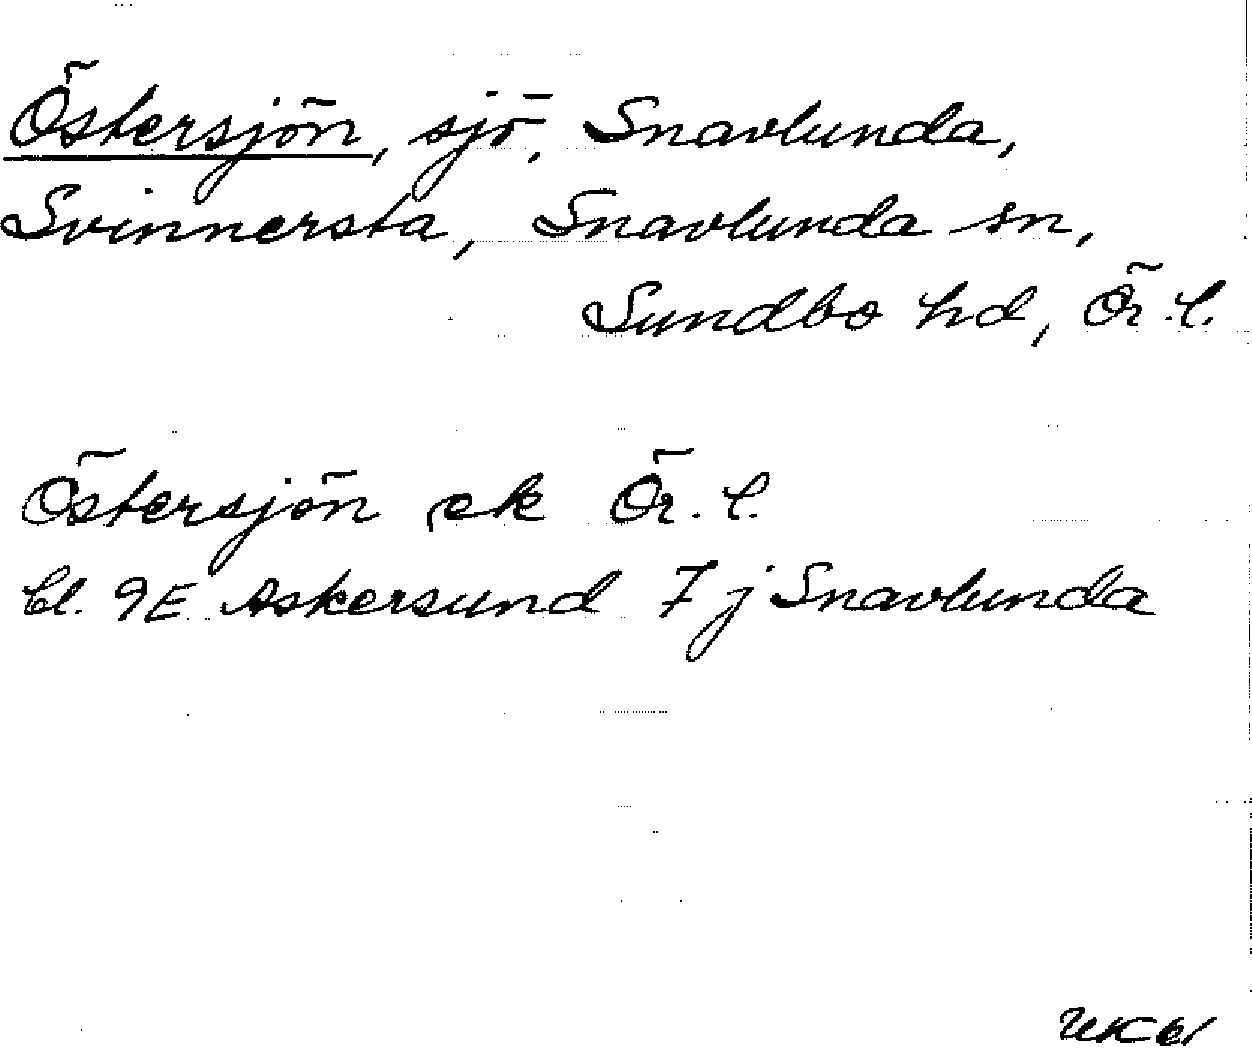 Östersjön, sjö, Snavlunda,
Svinnersta, Snavlunda sn,
Sundbo hd, Ör. l.
Östersjön ek Ör. l.
bl. 9E Askersund 7j Snavlunda